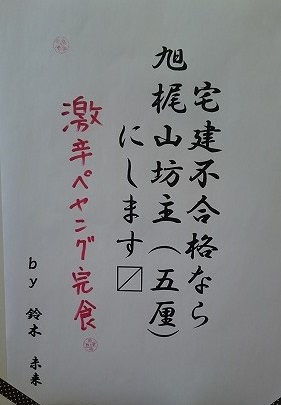 宅建不合格なら
旭梶山坊主(五厘)
にします〼
激辛ペヤング完食
by 鈴木 未来